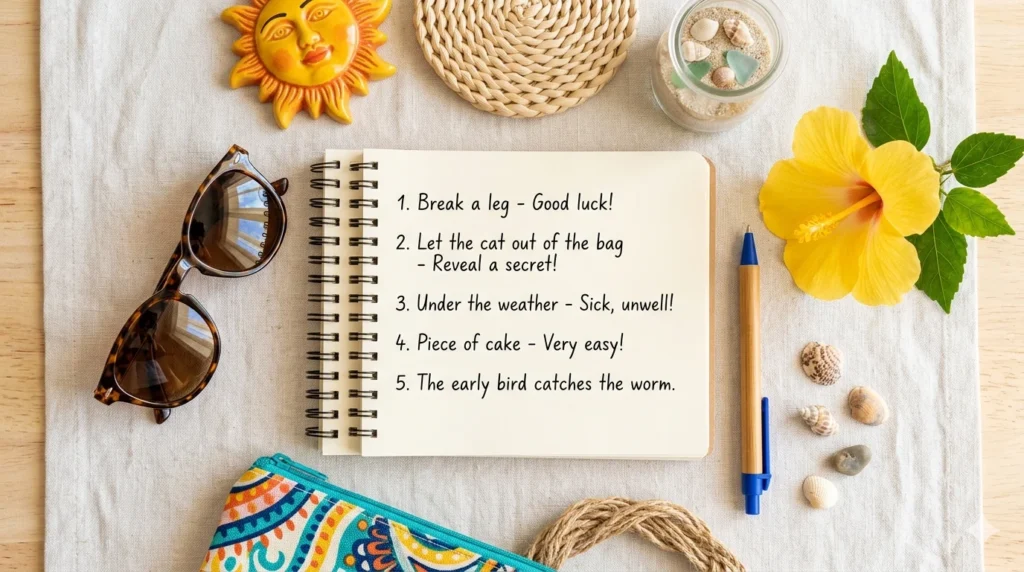 1. Break a leg - Good luck!
2. Let the cat out of the bag
- Reveal a secret!
3. Under the weather - Sick, unwell!
4. Piece of cake - Very easy!
5. The early bird catches the worm.